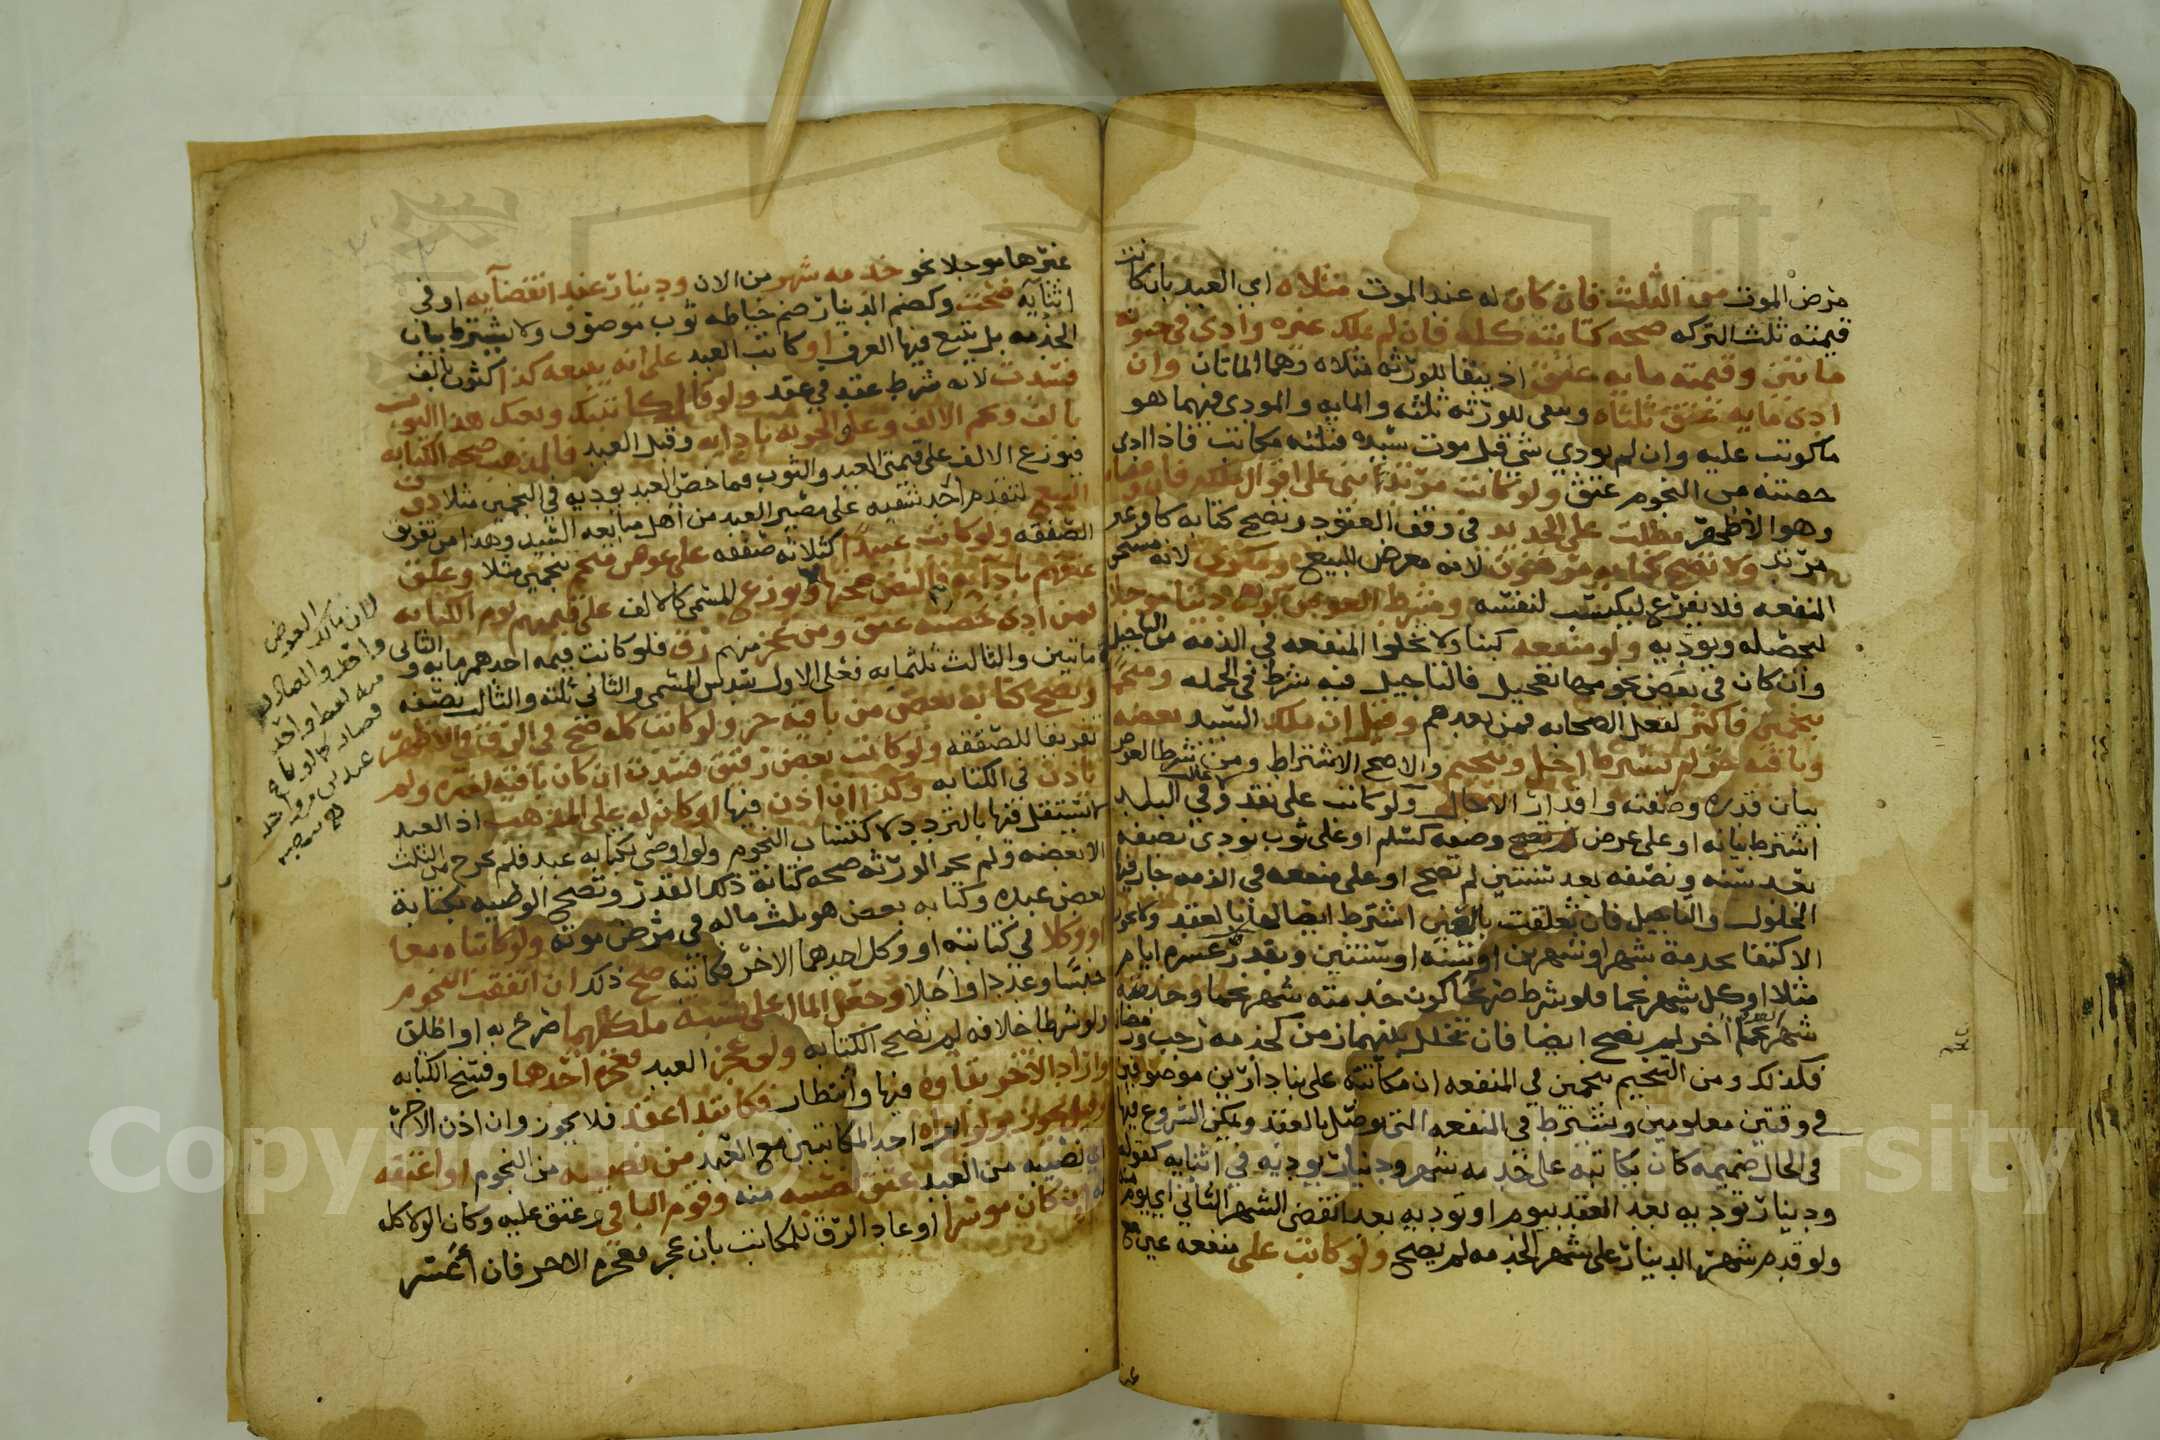 مرض الموت من الثلث فان كان له عند الموت مثلاه اي العبد بان كانت
قيمته ثلث التركه صحه كتابته كله فان لم يملك غيره وادى في حيوته
مائتين وقيمته مايه عتق اذ يبقا للورثه مثلاه وهما المائتان وان
ادى مايه عتق ثلثاه ويبقى للورثه ثلثه والمايه والمودى فيهما هو
ما كوتب عليه وان لم يودي شي قبل موت سيده فثلثه مكاتب فاذا ادى
حصته من النجوم عتق ولو كاتب مرتد بني على اقوال ملكه فان
وهو الاظهر بطلت على الجديد في وقف العقود وتصح كتابه كافر غير
مرتد ولا تصح كتابه مرهون لانه معرض للبيع ومكرى لانه مستحق
المنفعه فلا يفرغ ليكتسب لنفسه وشرط العوض كونه دينا موجلا
ليحصله ويوديه ولو منفعه كبنا ولا تخلوا المنفعه في الذمه من التاجيل
وان كان في بعض نجومها تعجيل فالتاجيل فيه شرط في الجمله ومنجما
بنجمين فاكثر لفعل الصحابه فمن بعدهم وقيل ان ملك السيد بعضه
وباقيه حر لم يشترط اجل وتنجيم والاصح الاشتراط ومن شرط العوض
بيان قدره وصفته واقدار الاجال ولو كاتب على نقد وفي البلد غالب
اشترط بيانه او على عرض وصفه كسلم او على ثوب يودي نصفه
بعد سنه ونصفه بعد سنتين لم تصح او على منفعه في الذمه جاز فيها
الحلول والتاجيل فان تعلقت بالعين اشترط ايصالها بالعقد
الاكتفا بخدمة شهر او شهرين او سنه او سنتين وبقدر عشره ايام
مثلا او كل شهر نجما فلو شرط صريحا كون خدمته شهر نجما وخدمته
شهر اخر لم تصح ايضا فان تخلل بينهما زمن كخدمه رجب ورمضان
فكذلك ومن التنجيم بنجمين في المنفعه ان مكاتبته على بنا دارين موصوفين
في وقتين معلومين ويشترط في المنفعه التي توصل بالعقد ويمكن الشروع فيها
في الحال ضميمه كان يكاتبه على خدمه شهر ودينار يوديه في اثنايه كقوله
ودينار توديه بعد العقد بيوم او توديه بعد انقضى الشهر الثاني اي يوم
ولو قدم شهر الدينار على شهر الخدمه لم يصح ولو كاتب على منفعه عين مع
غيرها موجلا نحو خدمه شهر من الان ودينار عند انقضايه او في
اثنايه صحت وكضم الدينار ضم خياطه ثوب موصوف ولا يشترط بيان
الخدمه بل يتبع فيها العرف او كاتب العبد على انه يبيعه كذا كثوب بالف
فسدت لانه شرط عقد في عقد ولو قال كاتبتك وبعتك هذا الثوب
بالف ونجم الالف وعلق الحريه بادايه وقبل العبد فالمذهب صحه الكتابه
فيوزع الالف على قيمتي العبد والثوب فما خص العبد يوديه في النجمين مثلا دون
البيع لتقدم احد شقيه على مصير العبد من اهل مبايعه السيد وهذا من تفريق
الصفقه ولو كاتب عبيدا كثلاثه صفقه على عوض منجم بنجمين مثلا وعلق
عتقهم بادايه فالنص صحتها ويوزع المسمى كالالف على قيمتهم يوم الكتابه
فمن ادى حصته عتق ومن عجز منهم رق فلو كانت قيمه احدهم مايه والثاني
مائتين والثالث ثلثمايه فعلى الاول سدس المسمى والثاني ثلثه والثالث نصفه
وتصح كتابه بعض من باقيه حر ولو كاتب كله صح في الرق في الاظهر
تفريقا للصفقه ولو كاتب بعض رقيق فسدت ان كان باقيه لغيره ولم
ياذن في الكتابه وكذا ان اذن فيها او كان له على المذهب اذ العبد
لا يستقل فيها بالتردد لاكتساب النجوم ولو اوصى بكتابه عبد فلم يخرج من الثلث
الا بعضه ولم يجز الورثه صحه كتابة ذلك القدر وتصح الوصيه بكتابة
بعض عبده وكتابه بعض هو ثلث ماله في مرض موته ولو كاتباه معا
او وكلا في كتابته او وكل احدهما الاخر فكاتبه صح ذلك ان اتفقت النجوم
جنسا وعددا واجلا وجعل المال على نسبة ملكيهما صرح به او اطلق
ولو شرطا خلافه لم تصح الكتابه ولو عجز العبد فعجزه احدهما وفسخ الكتابه
واراد الاخر بقاوه فيها وانتظار فكابتدا عقد فلا يجوز وان اذن الاخر
وقيل يجوز ولو ابراه احد المكاتبين مع العبد من نصيبه من النجوم او اعتقه
اي نصيبه من العبد عتق نصيبه منه وقوم الباقي وعتق عليه وكان الولا كله
له ان كان موسرا او عاد الرق للمكاتب بان عجز فعجزه الاخر فان اعسر